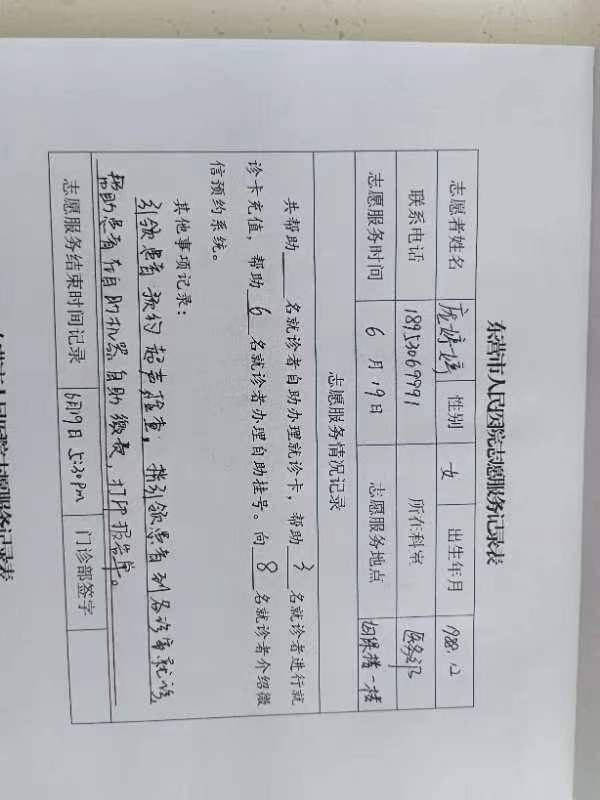 东营市人民医院志愿服务记录表
志愿者姓名 庞婷婷 性别 女 出生年月 1988.12
联系电话 18953069991 所在科室 医务部
志愿服务时间 6月19日 志愿服务地点 一楼
志愿服务情况记录
共帮助 名就诊者自助办理就诊卡，帮助3名就诊者进行就
诊卡充值，帮助6名就诊者办理自助挂号。向8名就诊者介绍微
信预约系统。
其他事项记录：
引领患者预约超声检查，指引领患者到各诊室就诊
帮助患者在自助机器自助缴费，打印报告单。
志愿服务结束时间记录 6月19日 5:30pm 门诊部签字